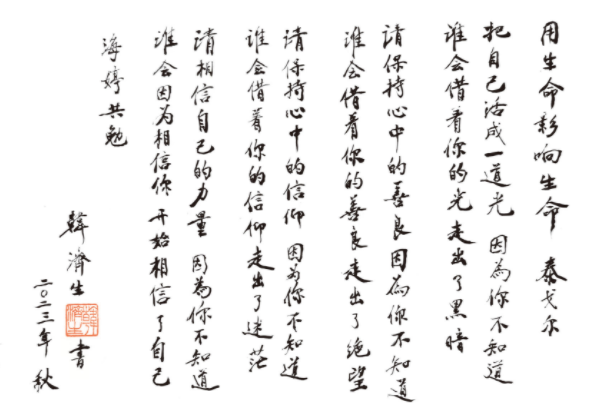 用生命影响生命 泰戈尔
把自己活成一道光 因為你不知道
谁会借着你的光走出了黑暗
请保持心中的善良因為你不知道
谁会借着你的善良走出了绝望
请保持心中的信仰 因为你不知道
谁会借着你的信仰走出了迷茫
请相信自己的力量 因为你不知道
谁会因为相信你 开始相信了自己
海婷共勉
韓濟生 書
二〇二三年秋